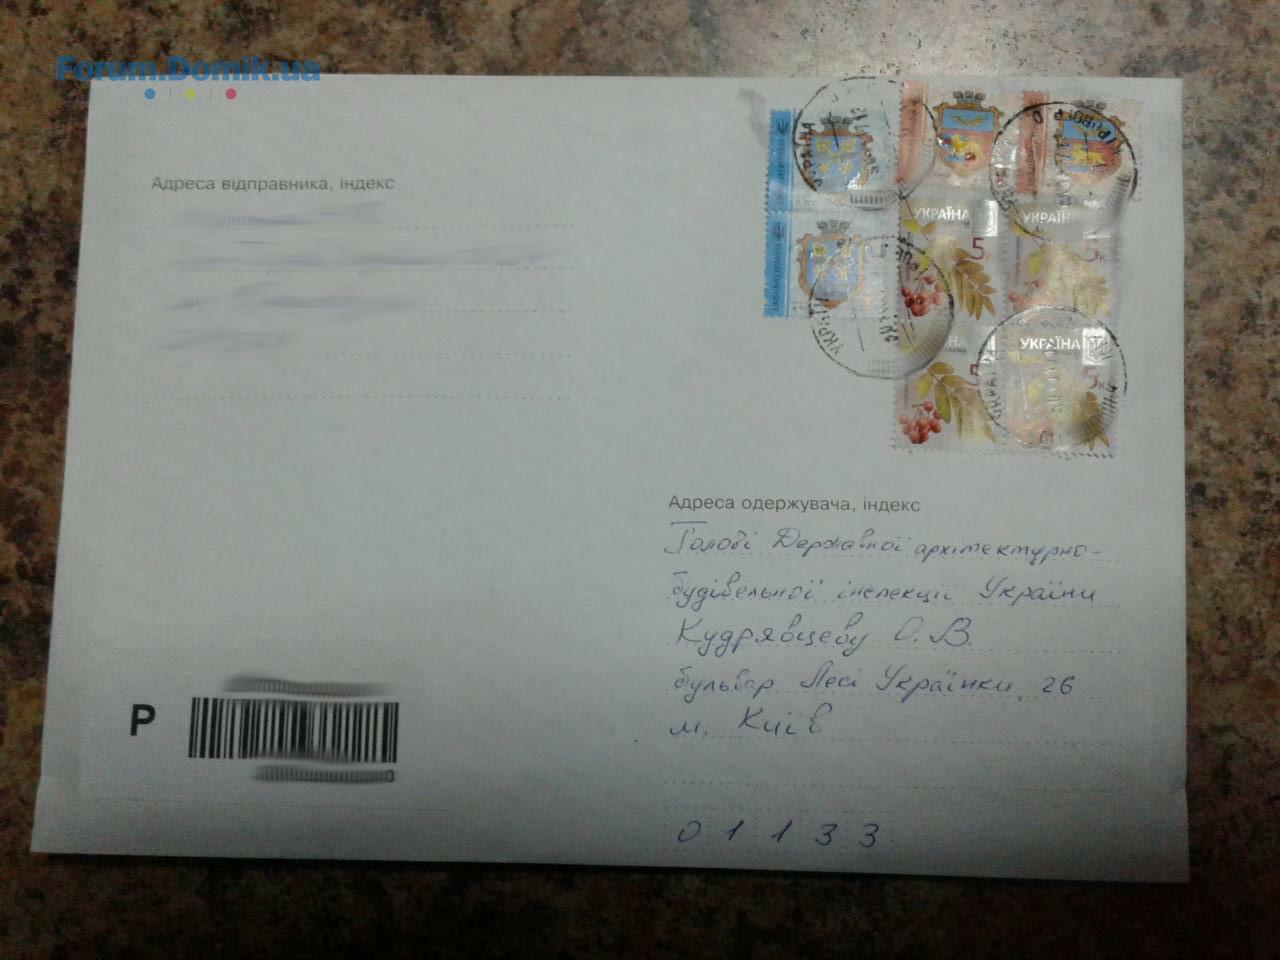 Forum.Domik.ua
Адреса відправника, індекс
УКРАЇНА
УКРАЇНА
5к
УКРАЇНА
5к
5
УКРАЇНА
5к
Адреса одержувача, індекс
Голові Державної архітектурно-
будівельної інспекції України
Кудрявцеву О. В.
бульвар Лесі Українки, 26
м. Київ
01133
P